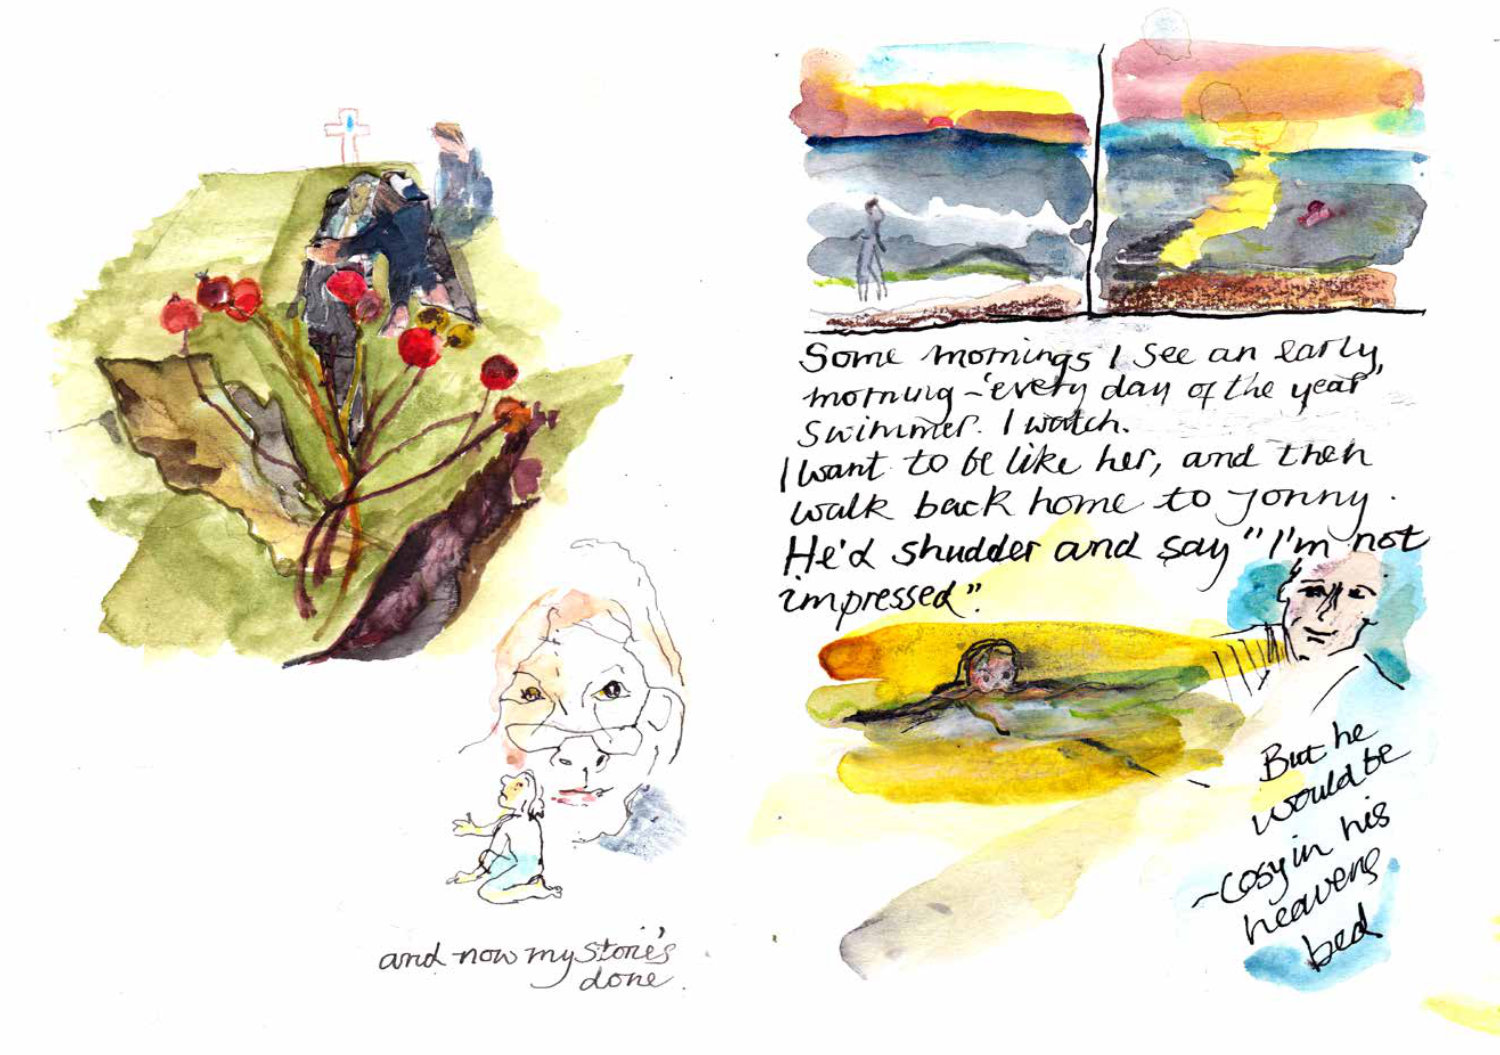 and now my storie's
done.
Some mornings I see an early,
morning - 'every day of the year'
swimmer. I watch.
I want to be like her, and then
walk back home to Jonny.
He'd shudder and say "I'm not
impressed".
But he
would be
- cosy in his
heavens
bed